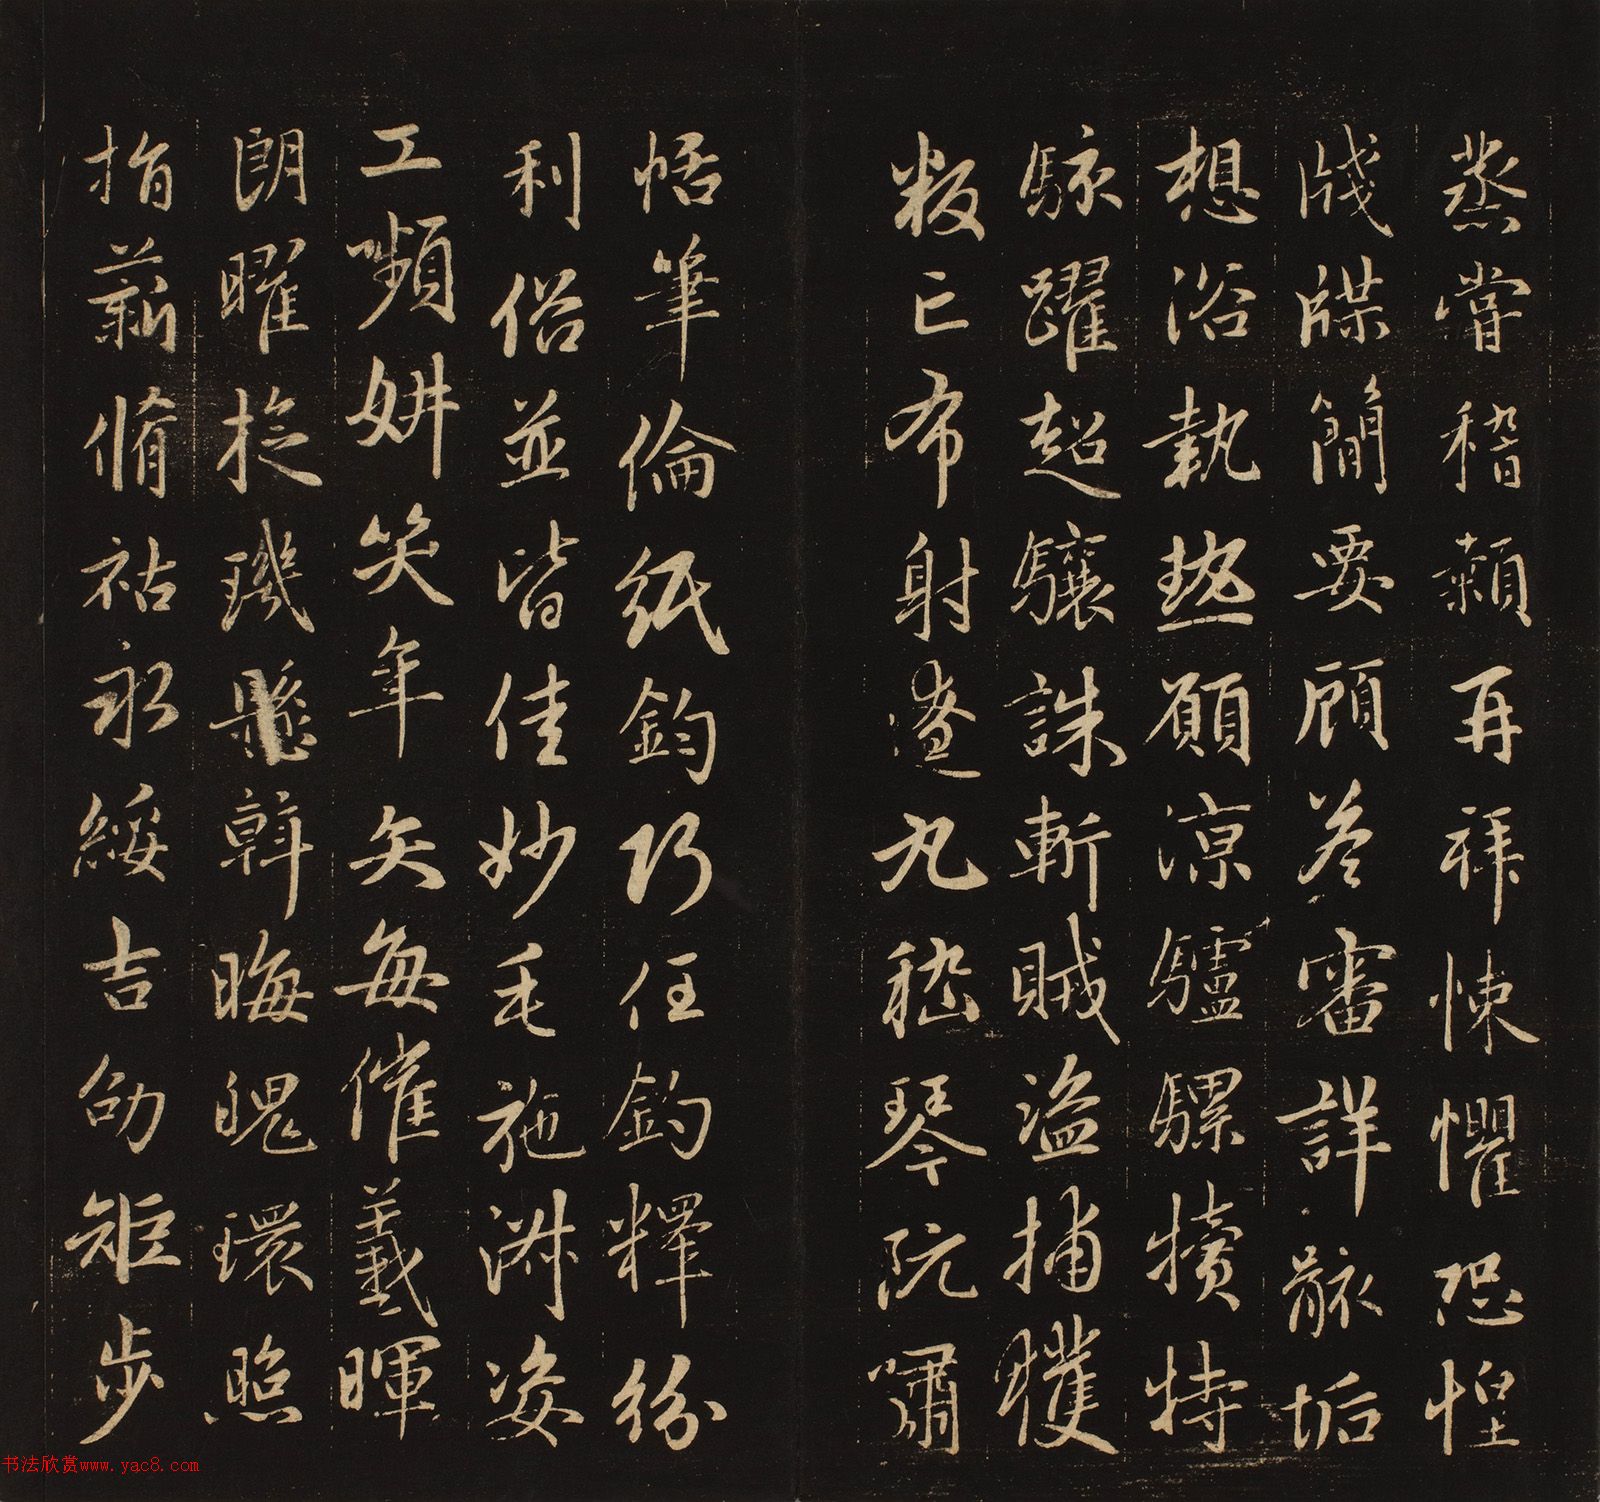 蒸嘗稽顙再拜悚懼恐惶
牋牒簡要顧答審詳骸垢
想浴執熱願涼驢騾犢特
駭躍超驤誅斬賊盜捕獲
叛亡布射遼丸嵇琴阮嘯
恬筆倫紙鈞巧任釣釋紛
利俗並皆佳妙毛施淑姿
工嚬妍笑年矢每催羲暉
朗曜旋璣懸斡晦魄環照
指薪脩祜永綏吉劭矩步
书法欣赏www.yac8.com